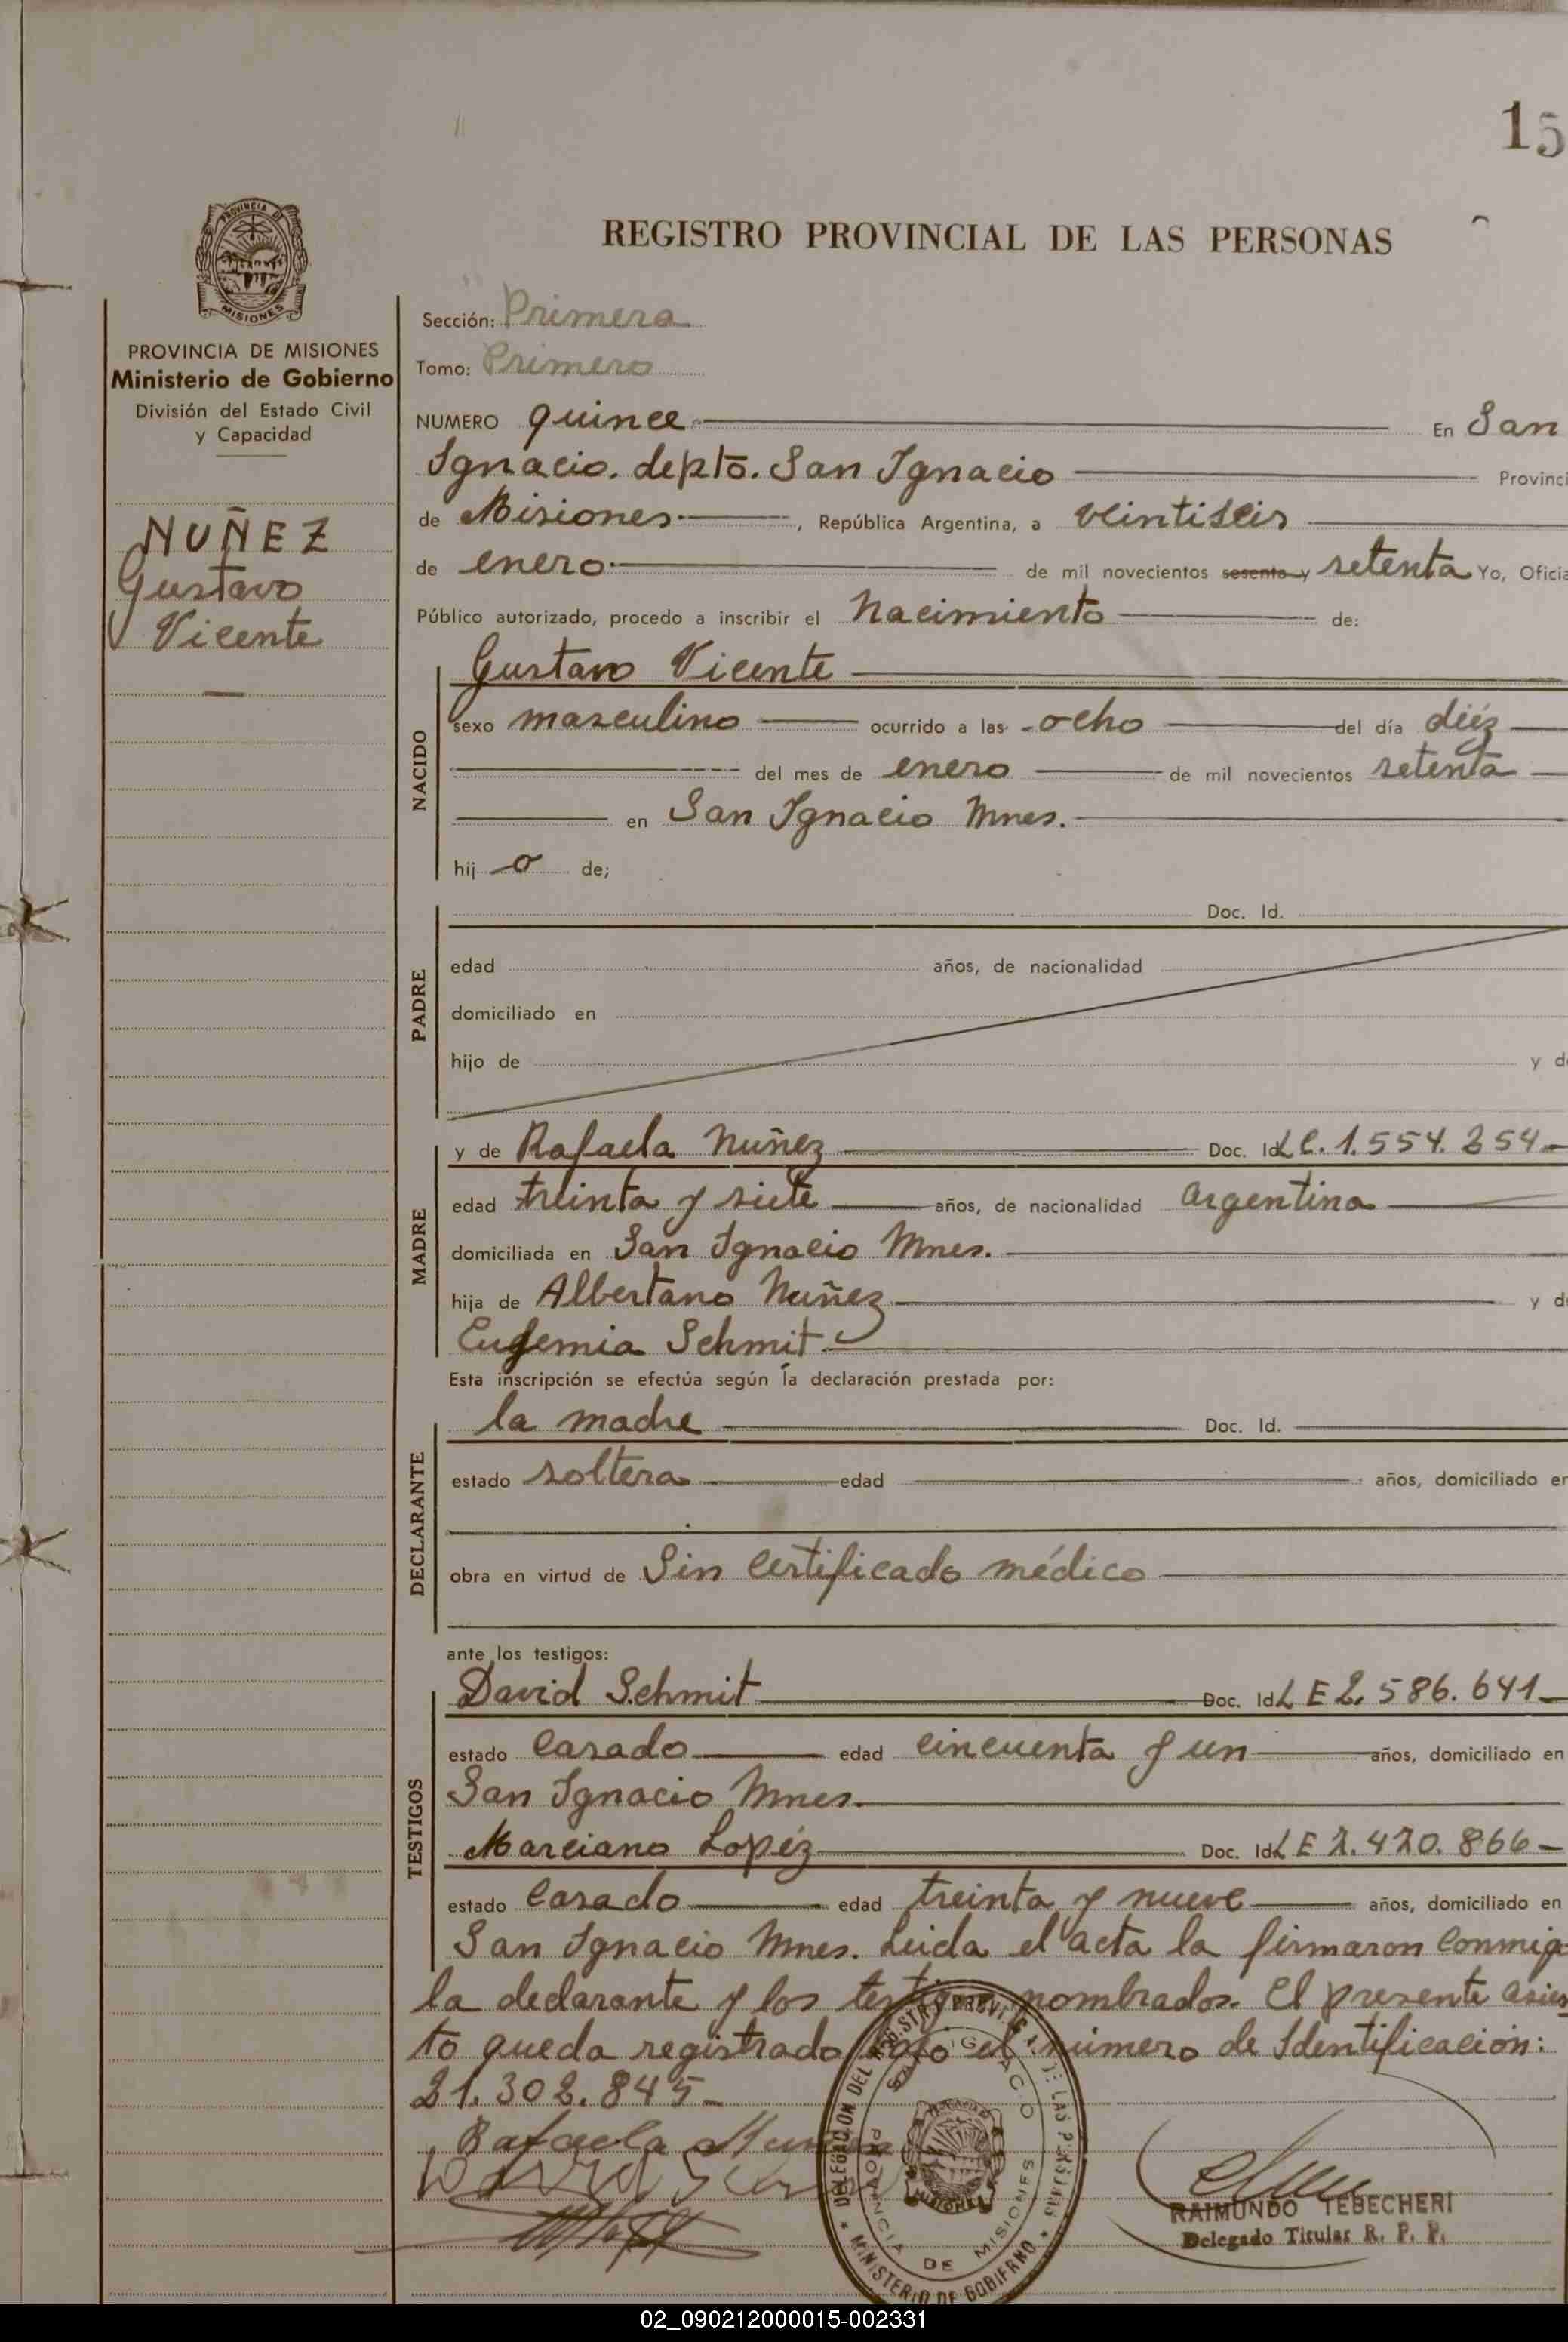 15
REGISTRO PROVINCIAL DE LAS PERSONAS
PROVINCIA DE
MISIONES
PROVINCIA DE MISIONES
Ministerio de Gobierno
División del Estado Civil
y Capacidad
NUÑEZ
Gustavo
Vicente
Sección: Primera
Tomo: Primero
NUMERO quince En San
Ignacio. depto. San Ignacio Provinci
de Misiones , República Argentina, a veintiseis
de enero de mil novecientos sesenta y setenta Yo, Oficia
Público autorizado, procedo a inscribir el Nacimiento de:
NACIDO
Gustavo Vicente
sexo masculino ocurrido a las ocho del día diéz
del mes de enero de mil novecientos setenta
en San Ignacio Mnes.
hij o de;
PADRE
Doc. Id.
edad años, de nacionalidad
domiciliado en
hijo de y d
MADRE
y de Rafaela Nuñez Doc. Id LC. 1.554.254
edad treinta y siete años, de nacionalidad argentina
domiciliada en San Ignacio Mnes.
hija de Albertano Nuñez y d
Eufemia Schmit
Esta inscripción se efectúa según la declaración prestada por:
DECLARANTE
la madre Doc. Id.
estado soltera edad años, domiciliado en
obra en virtud de Sin certificado médico
ante los testigos:
TESTIGOS
David Schmit Doc. Id LE 2.586.641
estado casado edad cincuenta y un años, domiciliado en
San Ignacio Mnes.
Marciano Lopéz Doc. Id LE 2.420.866
estado casado edad treinta y nueve años, domiciliado en
San Ignacio Mnes. Leida el acta la firmaron conmig
la declarante y los testigos nombrados. El presente asien
to queda registrado bajo el número de Identificación:
21.302.845
Rafaela Nuñez
DELEGACION DEL REGISTRO PROVINCIAL DE LAS PERSONAS
SAN IGNACIO
PROVINCIA DE MISIONES
MISIONES
MINISTERIO DE GOBIERNO
RAIMUNDO TEBECHERI
Delegado Titular R. P. P.
02_090212000015-002331